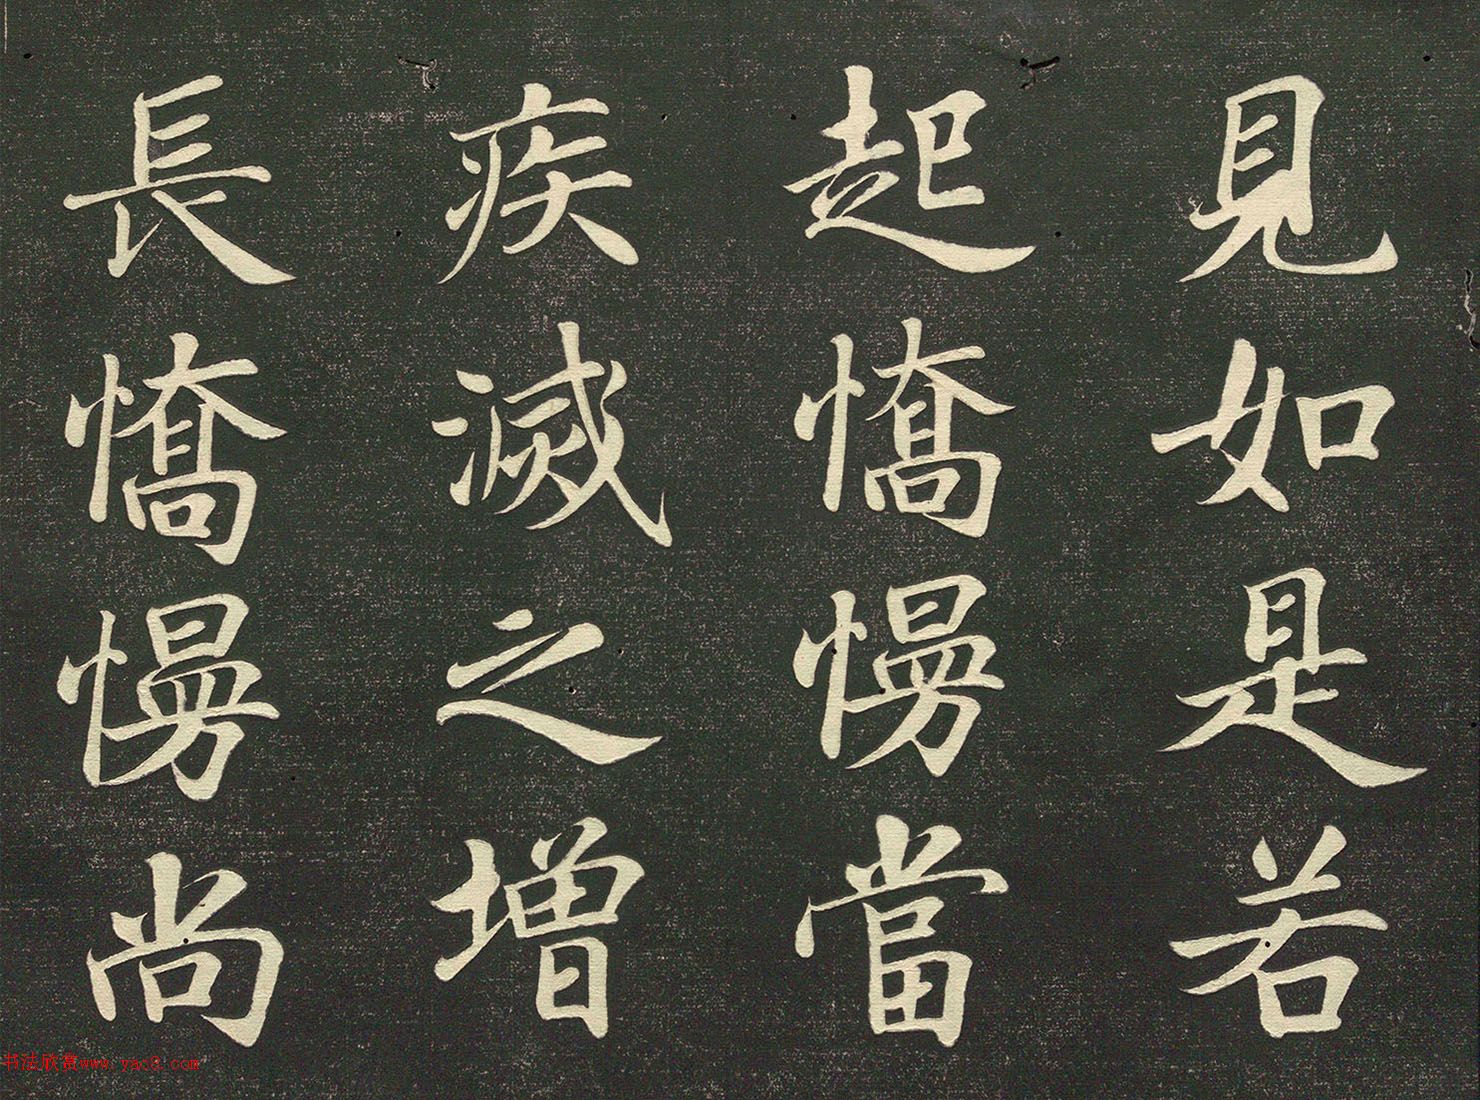 見如是若
起憍慢當
疾滅之增
長憍慢尚
书法欣赏www.yac8.com